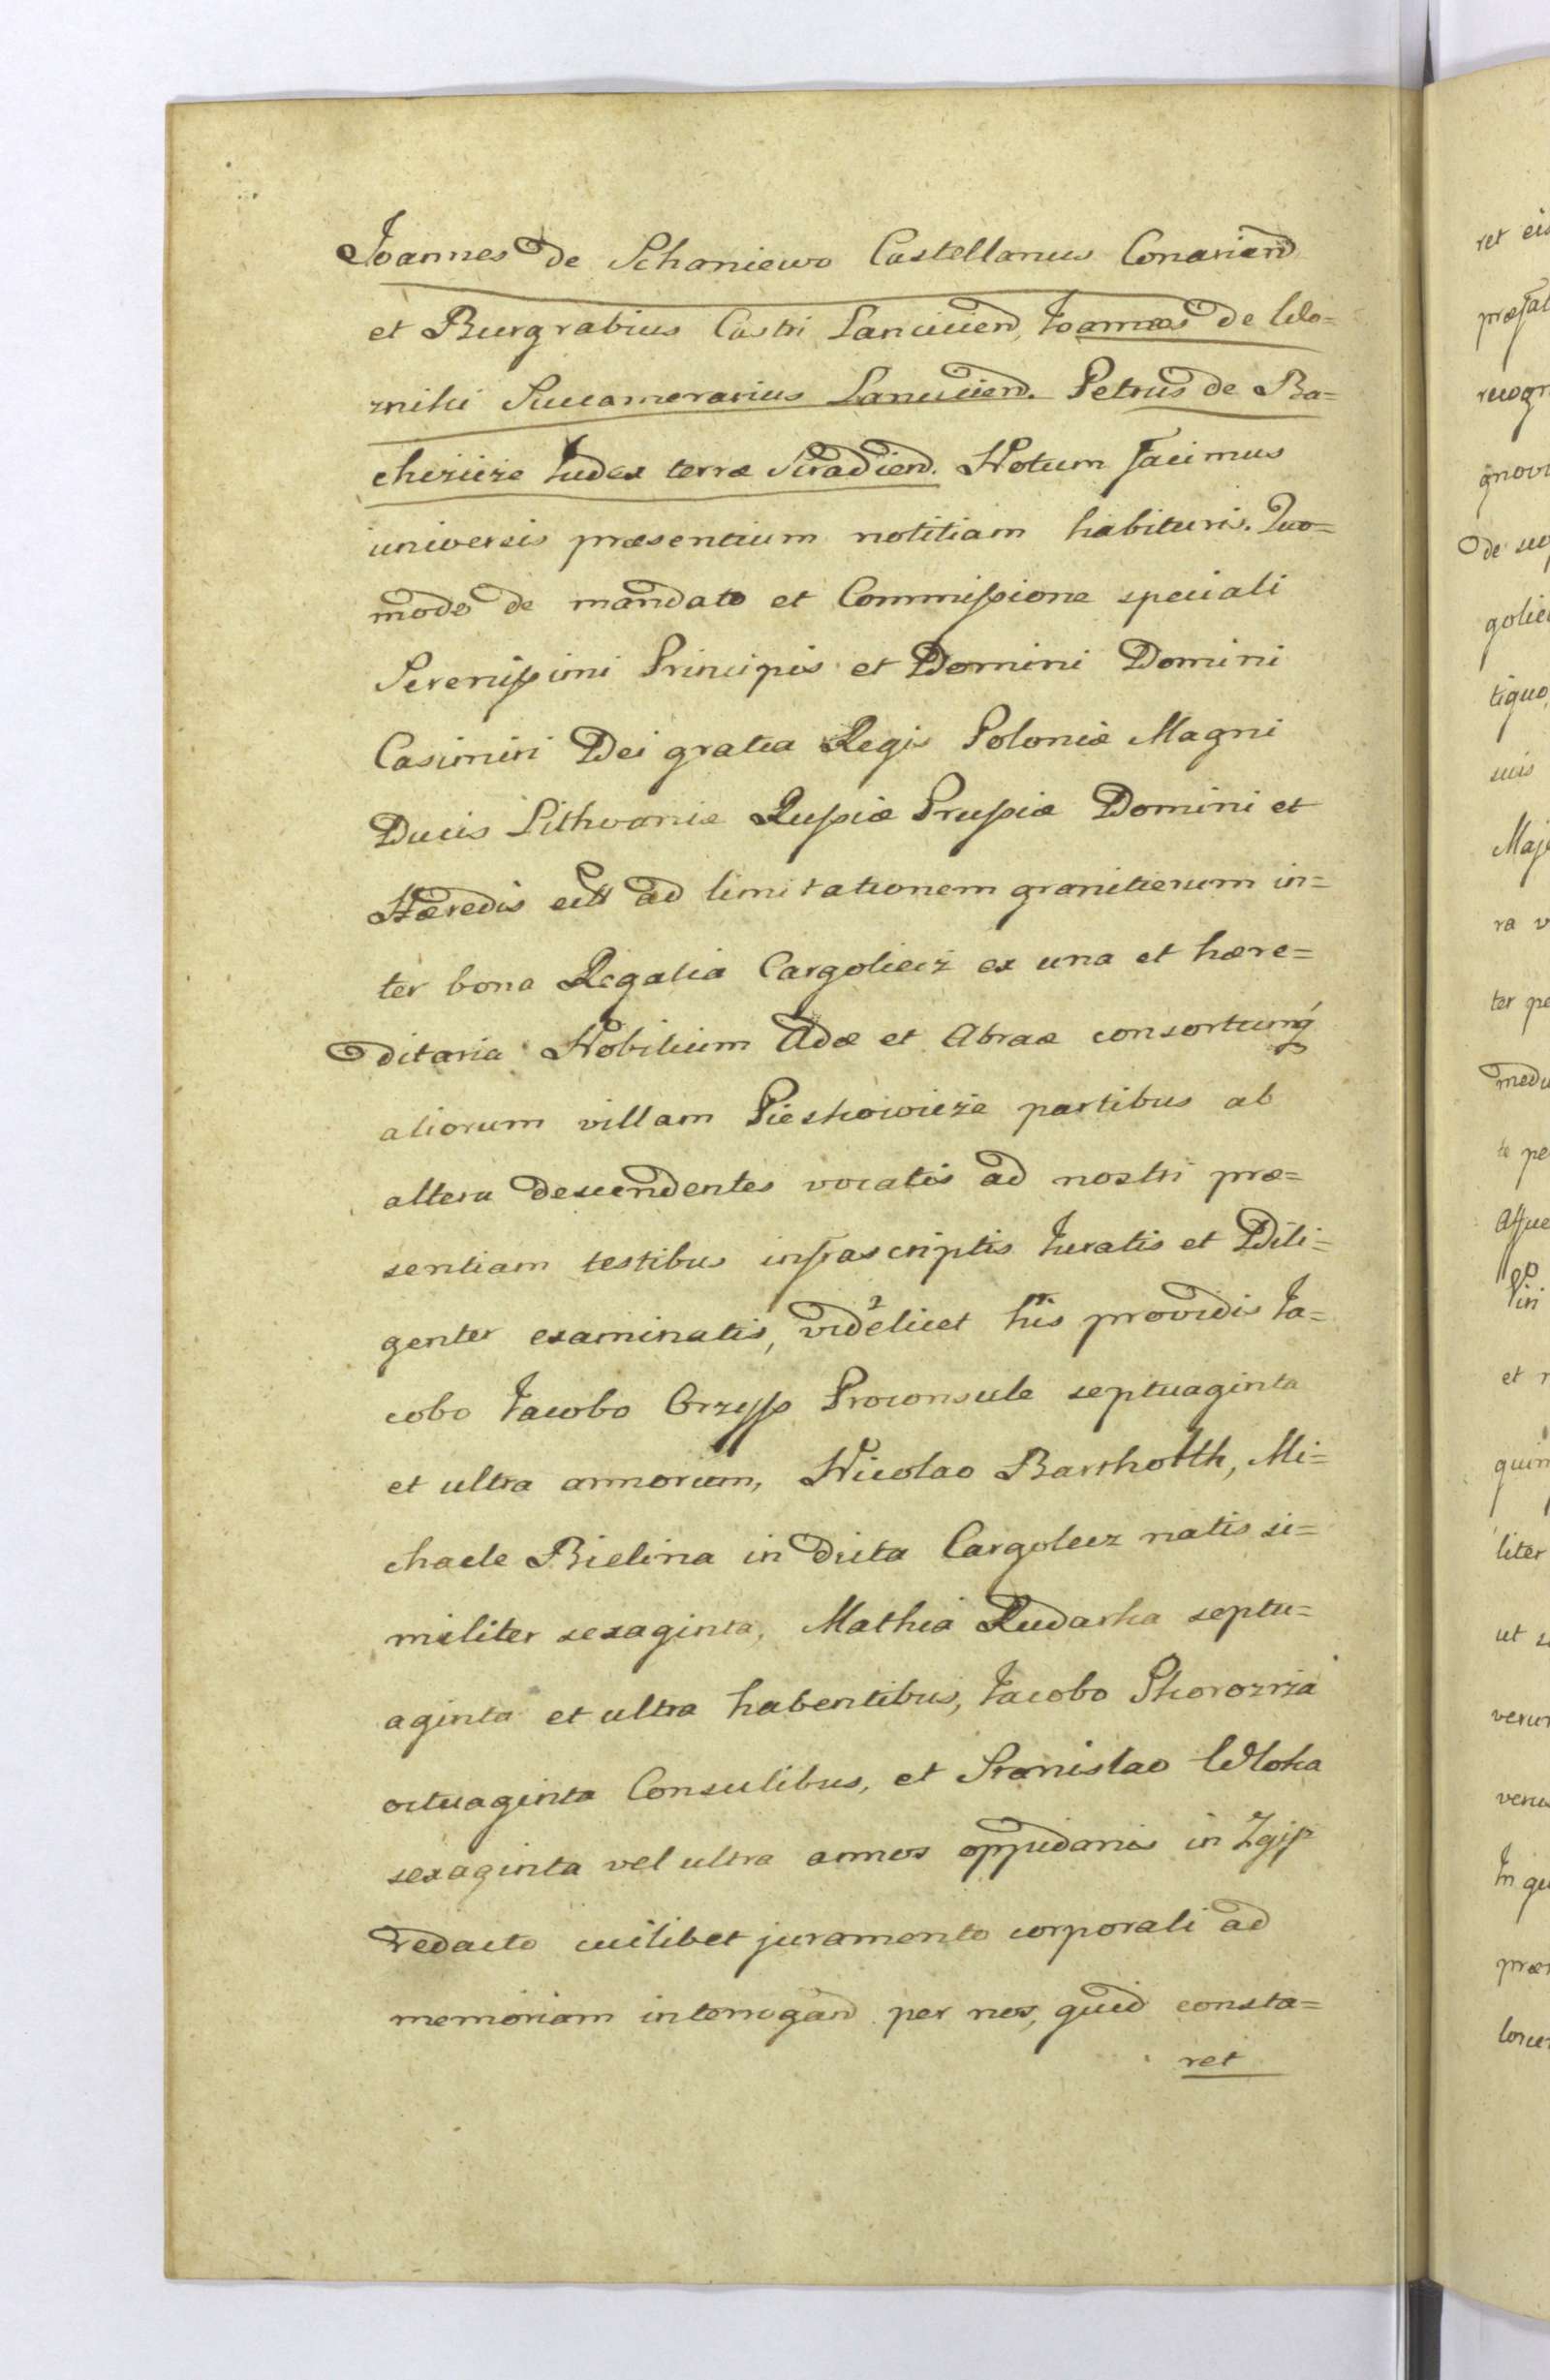 Joannes de Schaniewo Castellanus Conariend
et Burgrabius Castri Lanciciend, Joannes de Wo=
zniki Succamerarius Lanciciend. Petrus de Ba=
chcicze Judex terræ Siradiend. Notum facimus
universis præsentium notitiam habituris. Quo=
modo de mandato et Commissione speciali
Serenissimi Principis et Domini Domini
Casimiri Dei gratia Regis Poloniæ Magni
Ducis Lithvaniæ Russiæ Prussiæ Domini et
Hæredis ectt ad limitationem granitierum in=
ter bona Regalia Cargoliecz ex una et hære=
ditaria Nobilium Adæ et Abraæ consortumq́
aliorum villam Pieskowicze partibus ab
altera descendentes vocatis ad nostri præ=
sentiam testibus infrascriptis Juratis et Dili=
genter examinatis, videlicet his providis Ja=
cobo Jacobo Orzyss Proconsule septuaginta
et ultra annorum, Nicolao Bartholth, Mi=
chaele Bielina in dicta Cargolecz natis si=
militer sexaginta, Mathia Rudarka septu=
aginta et ultra habentibus, Jacobo Skorozrza
octuaginta Consulibus, et Stanislao Wloka
sexaginta vel ultra annos oppidanis in Zgiss
redacto cuilibet juramento corporali ad
memoriam interrogand per nos, quid consta=
ret
ret
recogn
de
tiquo,
suis
ra v
ter pe
te pe
et
liter
ut
In qu